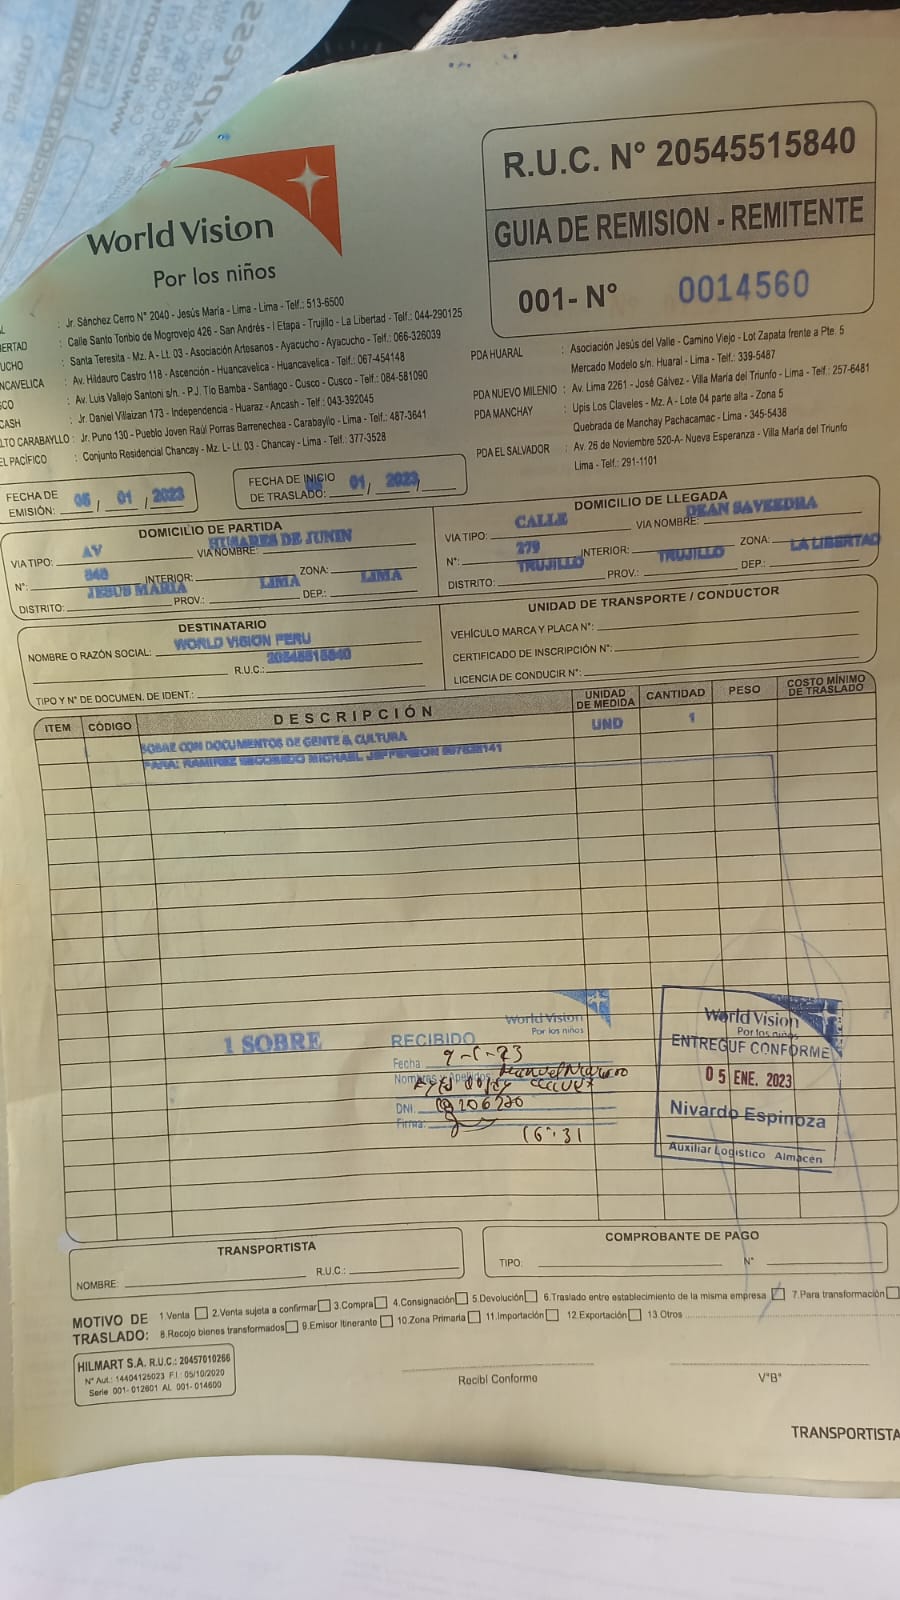 World Vision
Por los niños
R.U.C. N° 20545515840
GUIA DE REMISION - REMITENTE
001- N° 0014560
: Jr. Sánchez Cerro N° 2040 - Jesús María - Lima - Lima - Telf.: 513-6500
: Calle Santo Toribio de Mogrovejo 426 - San Andrés - I Etapa - Trujillo - La Libertad - Telf.: 044-290125
: Santa Teresita - Mz. A - Lt. 03 - Asociación Artesanos - Ayacucho - Ayacucho - Telf.: 066-326039
: Av. Hildauro Castro 118 - Ascención - Huancavelica - Huancavelica - Telf.: 067-454148
: Av. Luis Vallejo Santoni s/n. - P.J. Tío Bamba - Santiago - Cusco - Cusco - Telf.: 084-581090
: Jr. Daniel Villaizan 173 - Independencia - Huaraz - Ancash - Telf.: 043-392045
LTO CARABAYLLO : Jr. Puno 130 - Pueblo Joven Raúl Porras Barrenechea - Carabayllo - Lima - Telf.: 487-3641
EL PACÍFICO : Conjunto Residencial Chancay - Mz. L - Lt. 03 - Chancay - Lima - Telf.: 377-3528
PDA HUARAL : Asociación Jesús del Valle - Camino Viejo - Lot Zapata frente a Pte. 5
Mercado Modelo s/n. Huaral - Lima - Telf.: 339-5487
PDA NUEVO MILENIO : Av. Lima 2261 - José Gálvez - Villa María del Triunfo - Lima - Telf.: 257-6481
PDA MANCHAY : Upis Los Claveles - Mz. A - Lote 04 parte alta - Zona 5
Quebrada de Manchay Pachacamac - Lima - 345-5438
PDA EL SALVADOR : Av. 26 de Noviembre 520-A- Nueva Esperanza - Villa María del Triunfo
Lima - Telf.: 291-1101
FECHA DE EMISIÓN: 05 / 01 / 2023
FECHA DE INICIO DE TRASLADO: 05 01 / 2023
DOMICILIO DE PARTIDA
VIA TIPO: AV VIA NOMBRE: HUSARES DE JUNIN
N°: INTERIOR: ZONA:
DISTRITO: JESUS MARIA PROV.: LIMA DEP.: LIMA
DOMICILIO DE LLEGADA
VIA TIPO: CALLE VIA NOMBRE: DEAN SAVEEDRA
N°: 279 INTERIOR: ZONA:
DISTRITO: TRUJILLO PROV.: TRUJILLO DEP.: LA LIBERTAD
DESTINATARIO
NOMBRE O RAZÓN SOCIAL: WORLD VISION PERU
R.U.C.: 20545515840
TIPO Y N° DE DOCUMEN. DE IDENT.:
UNIDAD DE TRANSPORTE / CONDUCTOR
VEHÍCULO MARCA Y PLACA N°:
CERTIFICADO DE INSCRIPCIÓN N°:
LICENCIA DE CONDUCIR N°:
ITEM CÓDIGO DESCRIPCIÓN UNIDAD DE MEDIDA CANTIDAD PESO COSTO MÍNIMO DE TRASLADO
SOBRE CON DOCUMENTOS DE GENTE & CULTURA UND 1
PARA: RAMIREZ ESCOBEDO MICHAEL JEFFERSON
1 SOBRE
World Vision
Por los niños
RECIBIDO
Fecha 9-1-23
Nombres y Apellidos
DNI
Firma:
16:31
World Vision
Por los niños
ENTREGUE CONFORME
05 ENE. 2023
Nivardo Espinoza
Auxiliar Logistico Almacen
TRANSPORTISTA
NOMBRE: R.U.C.:
COMPROBANTE DE PAGO
TIPO: N°
MOTIVO DE TRASLADO: 1 Venta 2.Venta sujeta a confirmar 3.Compra 4.Consignación 5.Devolución 6.Traslado entre establecimiento de la misma empresa 7.Para transformación
8.Recojo bienes transformados 9.Emisor Itinerante 10.Zona Primaria 11.Importación 12.Exportación 13.Otros
HILMART S.A. R.U.C.: 20457010266
N° Aut.: 14404125023 F.I.: 05/10/2020
Serie 001- 012601 AL 001- 014600
Recibí Conforme
V°B°
TRANSPORTISTA